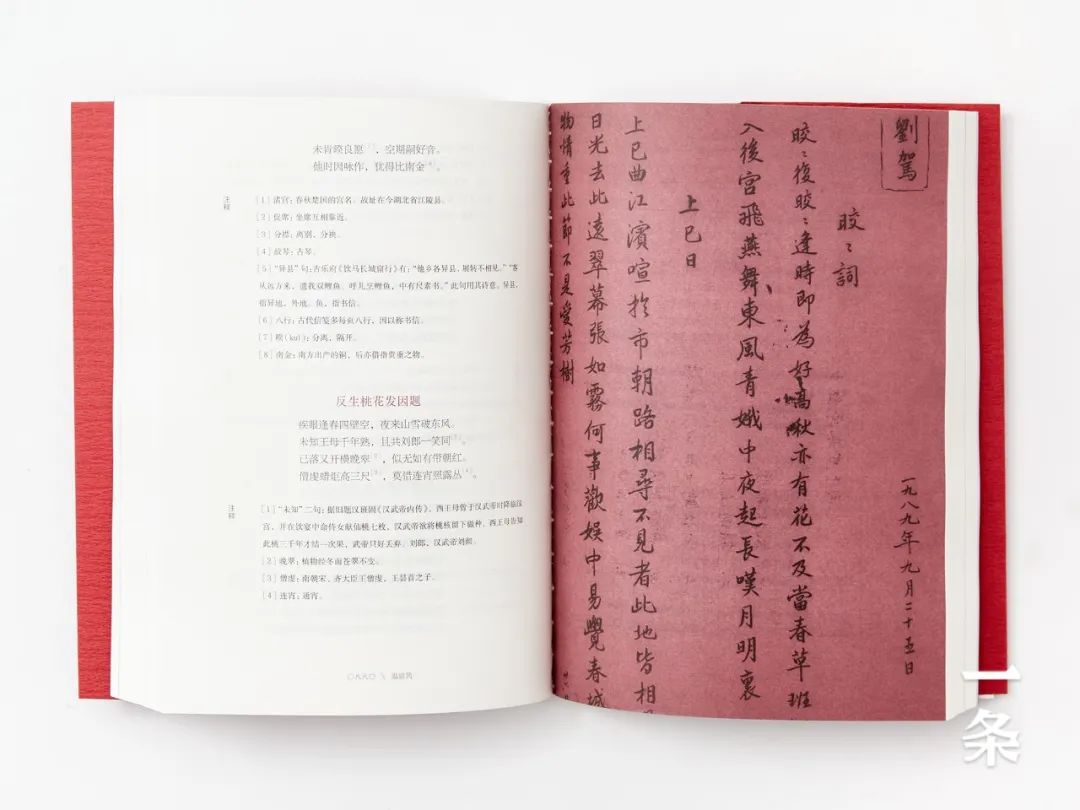 未肯暌良愿，空期嗣好音。
他时因咏作，犹得比南金。
注释
[1] 渚宫：春秋楚国的宫名。故址在今湖北省江陵县。
[2] 促席：坐席互相靠近。
[3] 分襟：离别，分袂。
[4] 故琴：古琴。
[5] “异县”句：古乐府《饮马长城窟行》有：“他乡各异县，展转不相见。”“客
从远方来，遗我双鲤鱼。呼儿烹鲤鱼，中有尺素书。”此句用其诗意。异县，
指异地、外地。鱼，指书信。
[6] 八行：古代信笺多每页八行，因以称书信。
[7] 暌(kuí)：分离，隔开。
[8] 南金：南方出产的铜，后亦借指贵重之物。
反生桃花发因题
疾眼逢春四壁空，夜来山雪破东风。
未知王母千年熟，且共刘郎一笑同。
已落又开横晚翠，似无如有带朝红。
僧虔蜡炬高三尺，莫惜连宵照露丛。
注释
[1] “未知”二句：据旧题汉班固《汉武帝内传》，西王母曾于汉武帝时降临汉
宫，并在饮宴中命侍女献仙桃七枚，汉武帝欲将桃核留下做种，西王母告知
此桃三千年才结一次果，武帝只好丢弃。刘郎，汉武帝刘彻。
[2] 晚翠：植物经冬而苍翠不变。
[3] 僧虔：南朝宋、齐大臣王僧虔，王昙首之子。
[4] 连宵：通宵。
劉駕
皎〻詞
皎〻復皎〻逢時即為好高秋亦有花不及當春草班
入後宮飛燕舞東風青娥中夜起長嘆月明裏
上巳日
上巳曲江濱喧於市朝路相尋不見者此地皆相
日光去此遠翠幕張如霧何事歡娛中易覺春城
物情重此節不是愛芳樹
一九八九年九月二十五日
一条